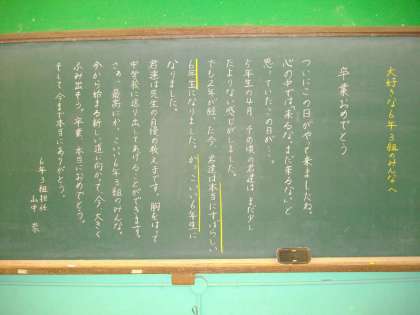 大好きな6年3組のみんなへ
卒業おめでとう
ついにこの日がやって来ましたね。
心の中では、来るな、まだ来るな、と
思っていたこの日が…。
5年生の4月、その頃の君達は、まだ少し
たよりない感じがしました。
でも2年が経った今、君達は本当にすばらしい
6年生になりました。かっこいい6年生に
なりました。
君達は先生の自慢の教え子です。胸をはって
中学校に送り出してあげることができます。
さあ、最高にかっこいい6年3組のみんな。
今から始まる新しい道に向かって、今、大きく
ふみ出そう。卒業、本当におめでとう。
そして今まで本当にありがとう。
6年3組担任
山中